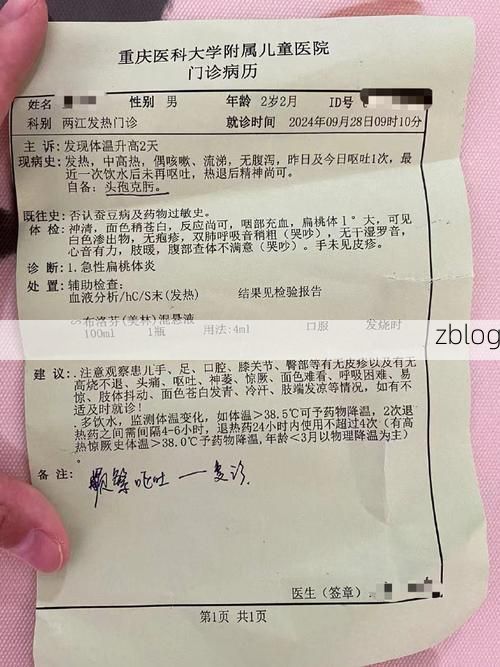 重庆医科大学附属儿童医院
门诊病历
姓名 性别 男 年龄 2岁2月 ID号
科别 两江发热门诊 就诊时间 2024年09月28日09时10分
主 诉:发现体温升高2天
现病史:发热,中高热,偶咳嗽、流涕,无腹泻,昨日及今日呕吐1次,最
近一次饮水后未再呕吐,热退后精神尚可。
自备:头孢克肟。
既往史:否认蚕豆病及药物过敏史。
体 检:神清,面色稍苍白,反应尚可,咽部充血,扁桃体1°大,可见
白色渗出物,无疱疹,双肺呼吸音稍粗(哭吵),无干湿罗音,
心音有力,肢暖,腹部查体不满意(哭吵)。手未见皮疹。
诊 断:1.急性扁桃体炎
处 置:辅助检查:
血液分析/hC/S末(发热) 结果见检验报告
布洛芬(美林)混悬液
100ml 1瓶 用法:4ml 口服 发烧时
zblog
建 议:.注意观察患儿手、足、口腔、膝关节、臀部等有无皮疹以及有无
高烧不退、头痛、呕吐、神萎、惊厥、面色难看、呼吸困难、易
惊、肢体抖动、面色苍白发青、冷汗、肢端发凉等情况,如有不
适及时就诊!
多饮水,监测体温变化,如体温>38.5℃可予药物降温,2次退
热药之间需间隔4-6小时,退热药24小时内使用不超过4次(有高
热惊厥史体温>38.0℃予药物降温,年龄<3月以物理降温为主)
。
备 注:
频繁呕吐—复诊
医生(签章):
第1页 共1页